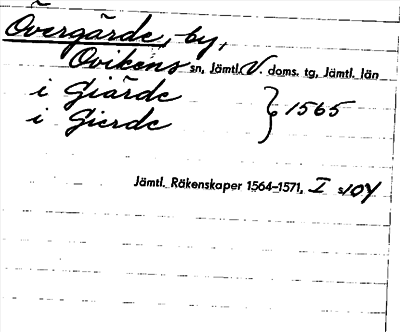 Övergärde, by,
Ovikens sn, Jämtl. V. doms. tg, Jämtl. län
i Giärde } 1565
i Gierde
Jämtl. Räkenskaper 1564–1571, I s. 104